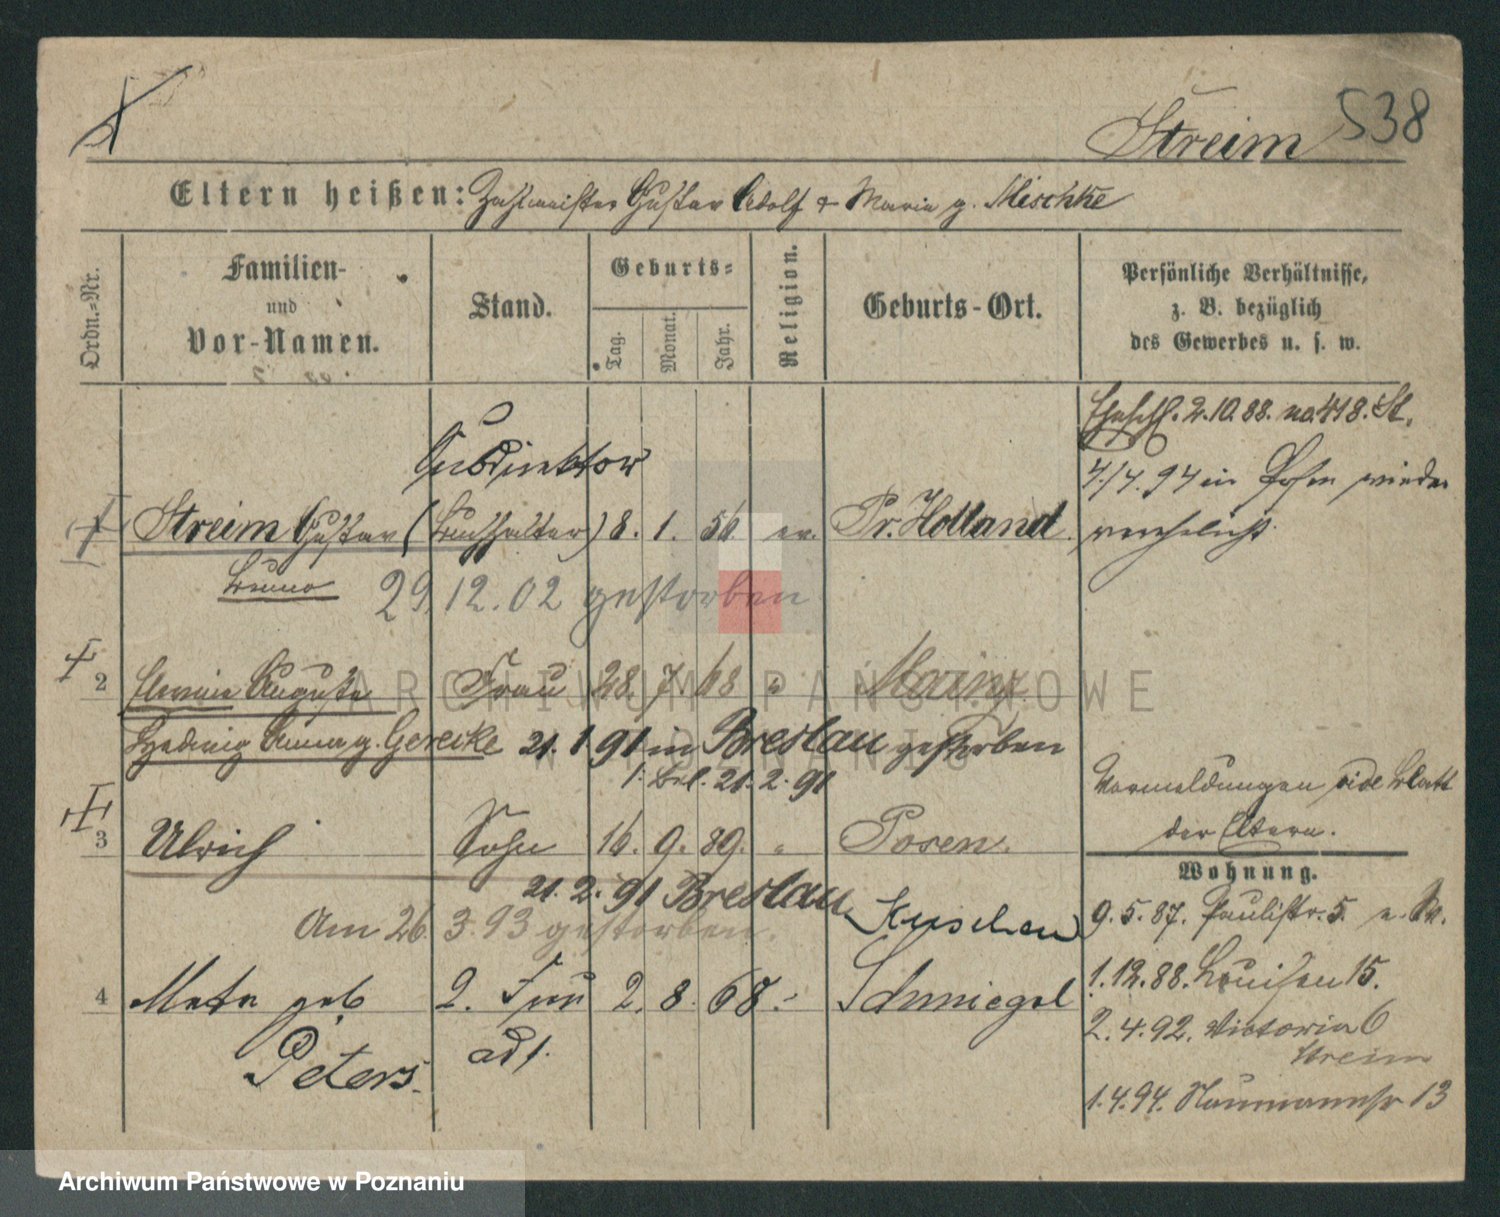 Streim 538
Eltern heißen: Zahlmeister Gustav Adolf & Marie g. Mischke
Ordn.-Nr.
Familien-
und
Vor-Namen.
Stand.
Geburts-
Tag.
Monat.
Jahr.
Religion.
Geburts-Ort.
Persönliche Verhältnisse,
z. B. bezüglich
des Gewerbes u. s. w.
Eheschl. 2.10.88. no. 418. St.
Subdirektor
4/4.94 in Posen wieder
Streim Gustav (Buchhalter) 8. 1. 56. ev. Pr. Holland
verehelicht.
Bruno
29.12.02 gestorben
2 Auguste Frau 28. 7. 68 " Mainz
Hedwig Anna g. Gericke 21.1.91 in Breslau gestorben
21.2.91
Vormeldungen vide Blatt
der Eltern.
3 Ulrich Sohn 16. 9. 89. " Posen.
Wohnung.
21.2.91 Breslau
Am 26.3.93 gestorben.
Kuschen
9.5.87. Paulistr. 5.
4 Meta geb 2. Frau 2. 8. 68. " Schmiegel
1.12.88. Louisen 15.
Peters.
2.4.92. Victoria 6
Streim
1.4.94. Naumannstr 13
ARCHIWUM PAŃSTWOWE
W POZNANIU
Archiwum Państwowe w Poznaniu